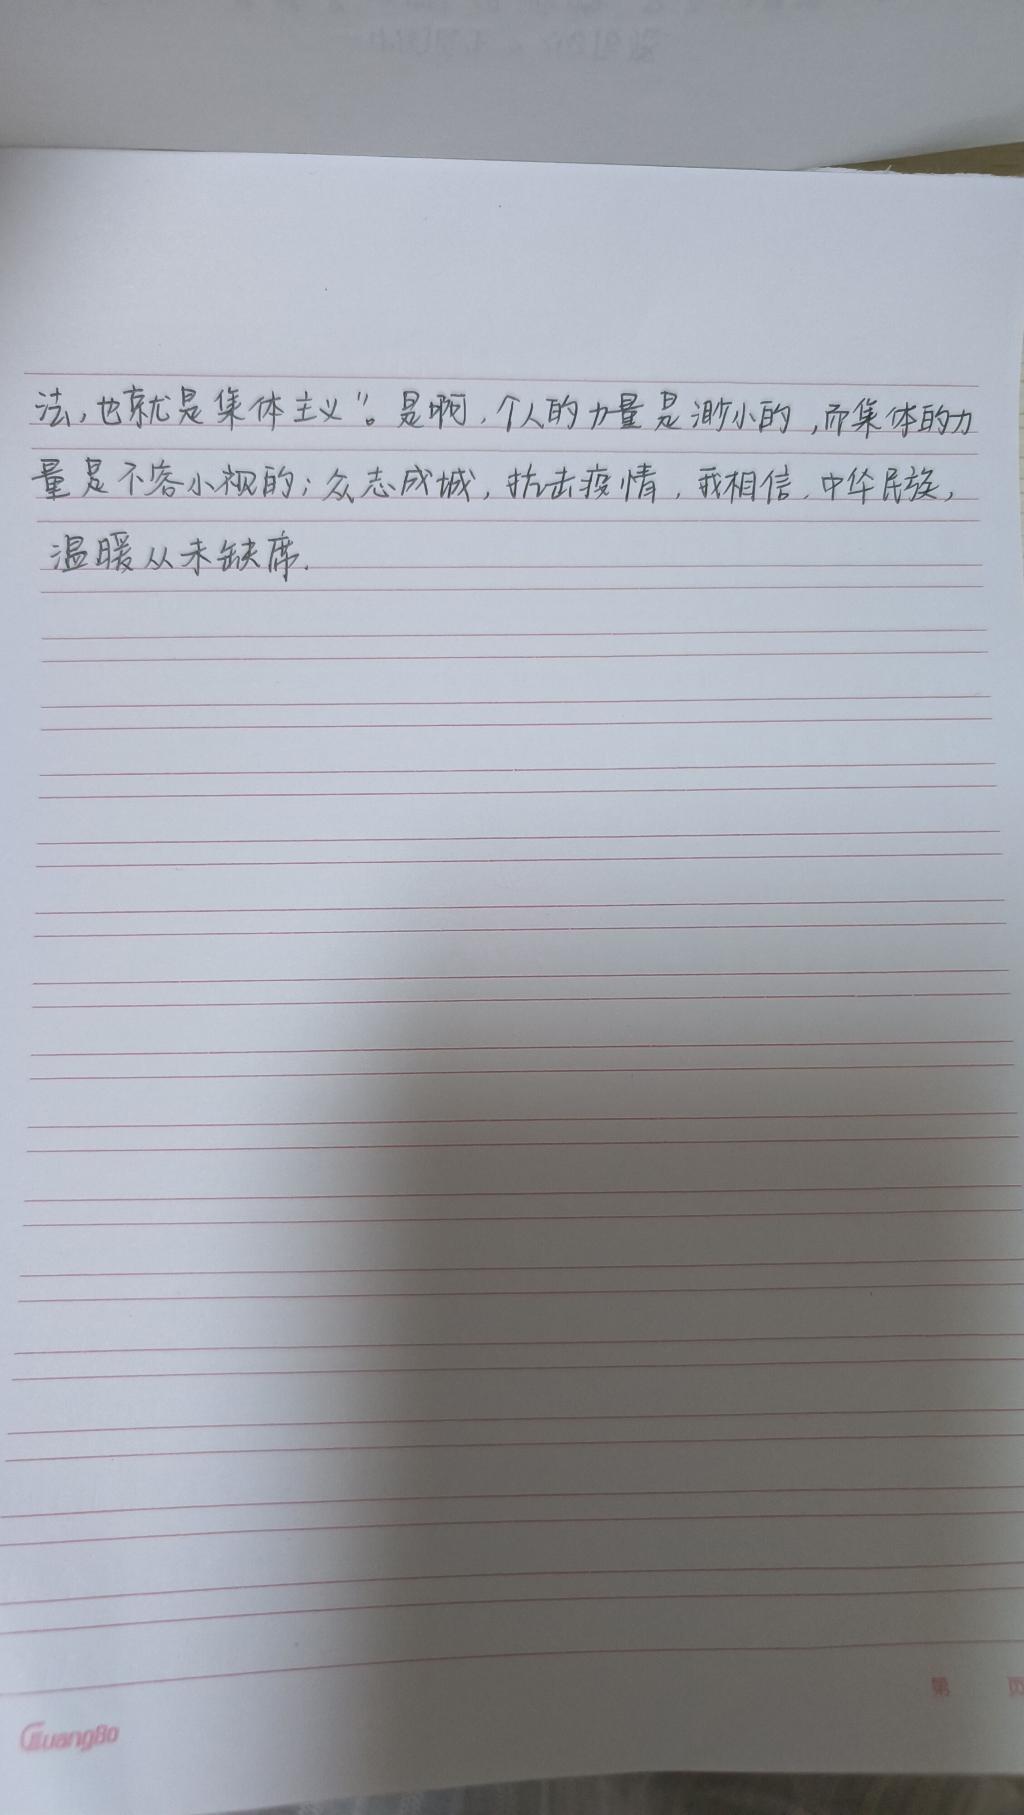 法,也就是集体主义"。是啊,个人的力量是渺小的,而集体的力
量是不容小视的;众志成城,抗击疫情,我相信,中华民族,
温暖从未缺席.
第 页
GuangBo